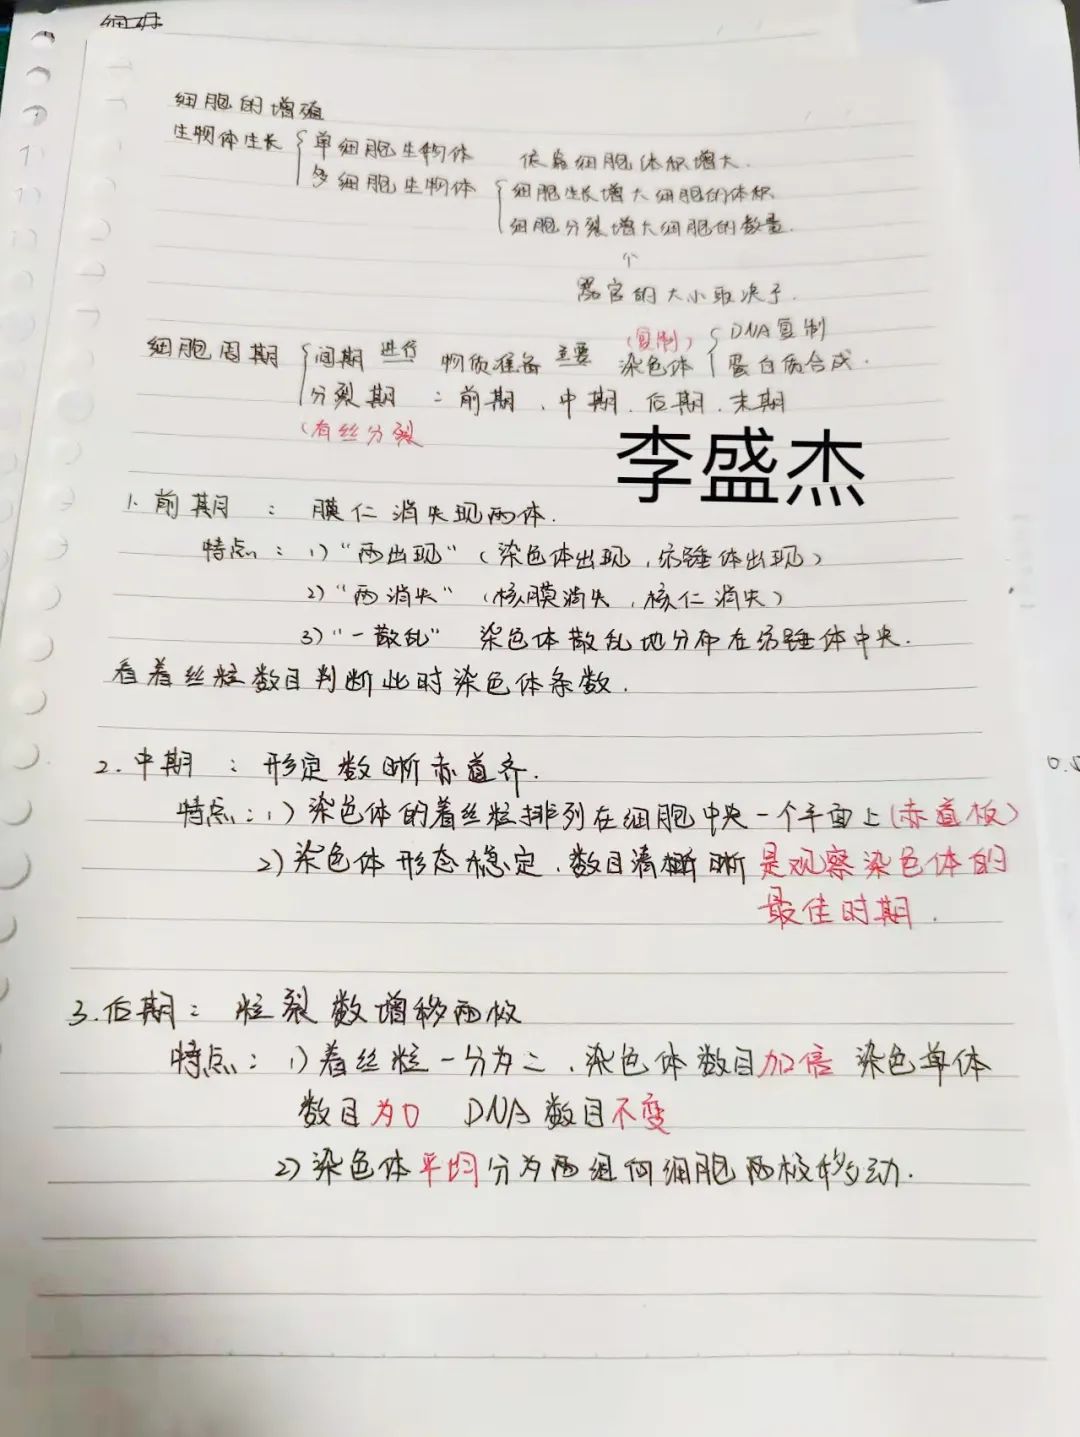 细胞的增殖
生物体生长 { 单细胞生物体 依靠细胞体积增大.
多细胞生物体 { 细胞生长增大细胞的体积
细胞分裂增大细胞的数量.
个
器官的大小取决于.
细胞周期 { 间期 进行 物质准备 主要 (复制) 染色体 { DNA复制
蛋白质合成.
分裂期 : 前期 、中期 、后期 、末期
(有丝分裂
李盛杰
1. 前期 : 膜仁消失现两体.
特点: 1) “两出现” (染色体出现, 纺锤体出现)
2) “两消失” (核膜消失, 核仁消失)
3) “一散乱” 染色体散乱地分布在纺锤体中央.
看着丝粒数目判断此时染色体条数.
2. 中期 : 形定数晰赤道齐.
特点: 1) 染色体的着丝粒排列在细胞中央一个平面上(赤道板)
2) 染色体形态稳定, 数目清晰 是观察染色体的
最佳时期.
3. 后期: 粒裂数增移两极
特点: 1) 着丝粒一分为二, 染色体数目加倍 染色单体
数目为0 DNA数目不变
2) 染色体平均分为两组向细胞两极移动.